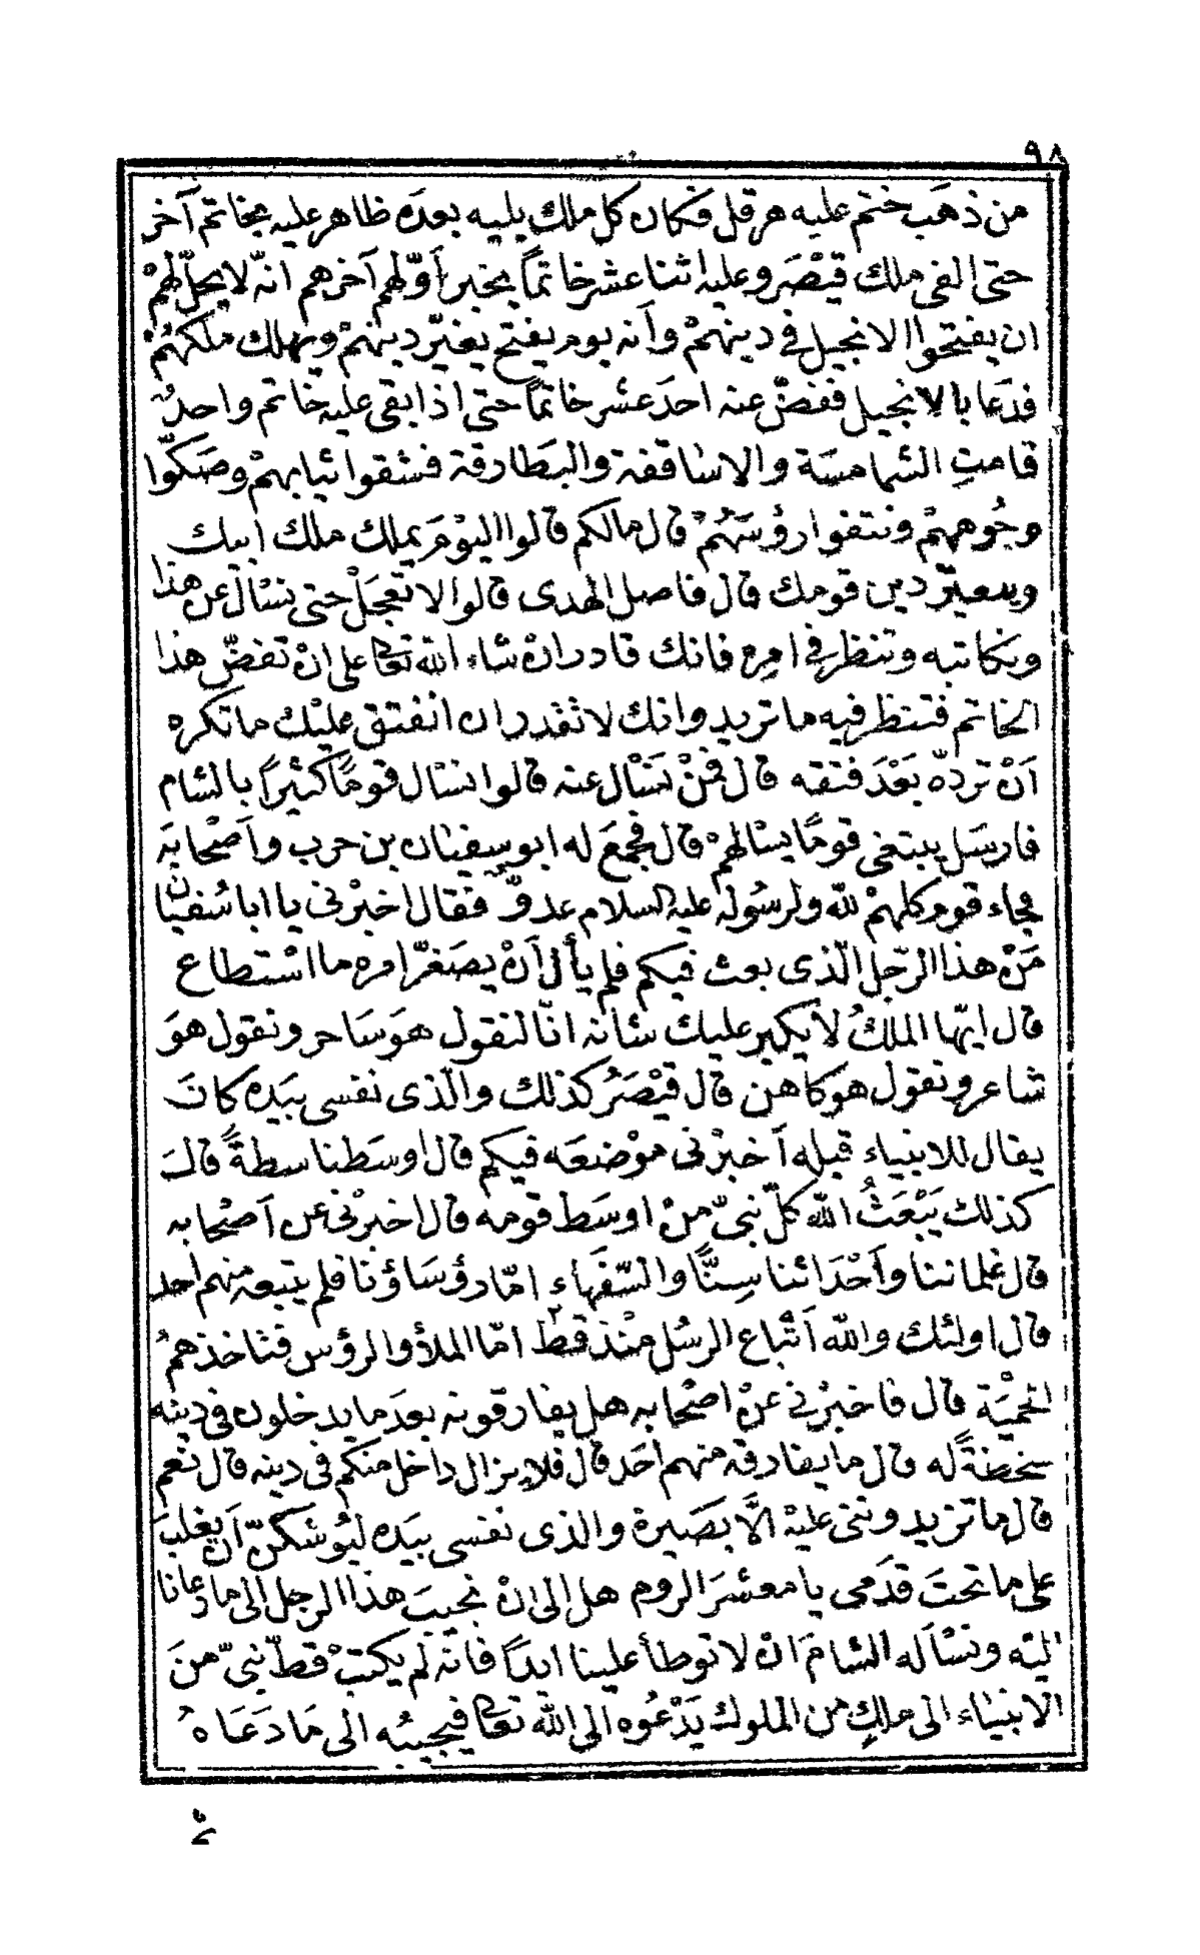 ٩٨
من ذهَب ختم عليه هرقل فكان كل ملك يليه بعدَه ظاهر عليه بخاتم آخر
حتى الفى ملك قيْصَر وعليه اثنا عشر خاتمًا يخبر أوّلهم آخرهم انّه لا يحلّ لهمْ
ان يفتحوا الانجيل فى دينهمْ وأنه يوم يفتح يغيّر دينهمْ ويهلك ملكهُمْ
فدَعا بالانجيل ففضّ عنه احدَ عشر خاتمًا حتى اذا بقى عليه خاتم واحدٌ
قامتِ الشمامسَة والاساقفة والبَطارقة فشقوا ثيابهمْ وصَكّوا
وجُوههمْ ونتفوا رؤسَهُمْ قال مالكم قالوا اليوْمَ يملك ملك ابيك
ويتغيّر دين قومك قال فاصل الهدى قالوا لا تعجَلْ حتى نسْال عن هذا
ونكاتبه وتنظر فى امره فانك قادر انْ شاء الله تعالى على انْ تفضّ هذا
الخاتم فتنظر فيه ما تريد وانك لا تقدر ان انفتق عليْك ما تكره
اَنْ تردّه بَعْدَ فتقه قال فمنْ نسْال عنه قالوا نسْال قومًا كثيرًا بالشام
فارسَل يبتغى قومًا يسْالهمْ قال فجمعَ له ابو سفيٰان بن حرب واَصْحابَه
فجاء قوم كلهمْ لله ولرسُوله عليه السلام عدوّ فقال اخبرْنى يا ابا سُفيٰان
مَنْ هذا الرّجل الّذى بعث فيكم فلم يألُ أنْ يصَغرّ امره ما اسْتطاع
قال ايّها الملكُ لا يكبر عليك شانه انّا لنقول هوَ سَاحر ونقول هوَ
شاعر ونقول هو كاهن قال قيْصَرُ كذلك والّذى نفسى بيَده كانَ
يقال للانبياء قبله اَخبرْنى موْضعَه فيكم قال اوسَطنا سطةً قالَ
كذلك يَبْعَثُ الله كلّ نبىّ منْ اوسَط قومه قال اخبرْنى عن اَصْحابه
قال غلماننا وأحْدَاثنا سِنًّا والسّفَهاء امّا رؤسَاؤنا فلم يتبعه منهم احد
قال اولئك والله اَتْباع الرسُل منْذ قط امّا الملأ والرؤس فتاخذهمُ
الحميَّة قال فاخبرْنى عنْ اصْحابه هل يفارقونه بعدَ ما يدخلون فى دينه
سخطةً له قال ما يفارقه منهم احَد قال فلا يزال داخل منكم فى دينه قال نعم
قال ما تزيدوننى عليْه الَّا بَصَيرة والذى نفسى بيَده ليُوشكنّ أن يغلبَ
على ما تحتَ قدَمى يا معشرَ الروم هل الى انْ نجيبَ هذا الرجل الى ما دعانا
اليْه ونسْأله الشامَ انْ لا توطأ علينا ابدًا فانّه لم يكتبْ قطّ نبىّ منَ
الانبياء الى ملكٍ من الملوك يَدْعُوه الى الله تعالى فيجيبُه الى مَا دَعَاهُ